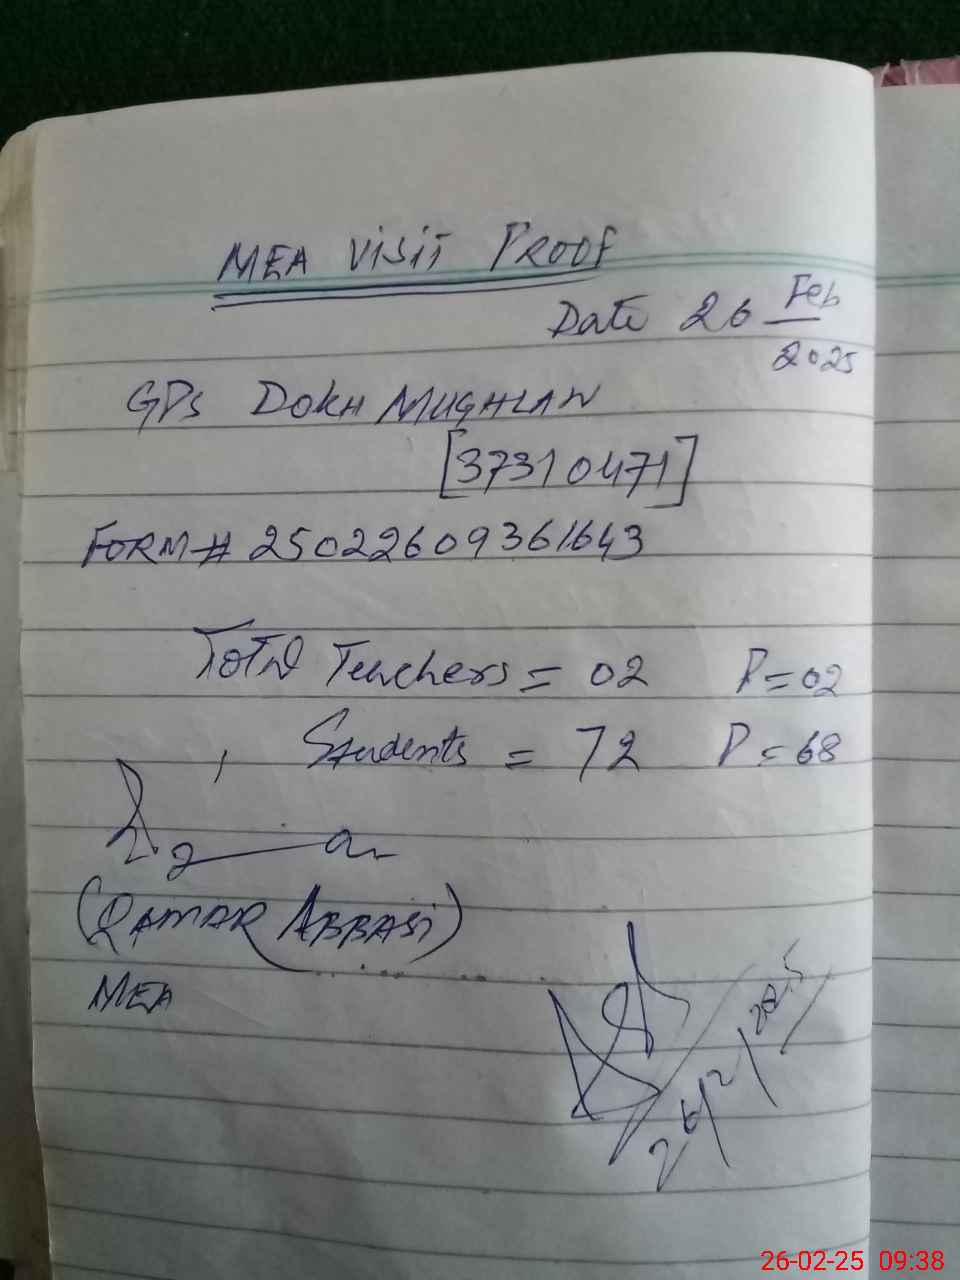 MEA Visit Proof
Date 26 Feb
2025
GPS DOKH MUGHLAN
[37310471]
FORM # 25022609361643
Total Teachers = 02 P = 02
, Students = 72 P = 68
(QAMAR ABBASI)
MEA
26/2/2025
26-02-25 09:38